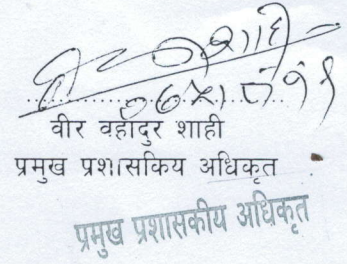 वीर वहादुर शाही
प्रमुख प्रशासकिय अधिकृत
प्रमुख प्रशासकीय अधिकृत